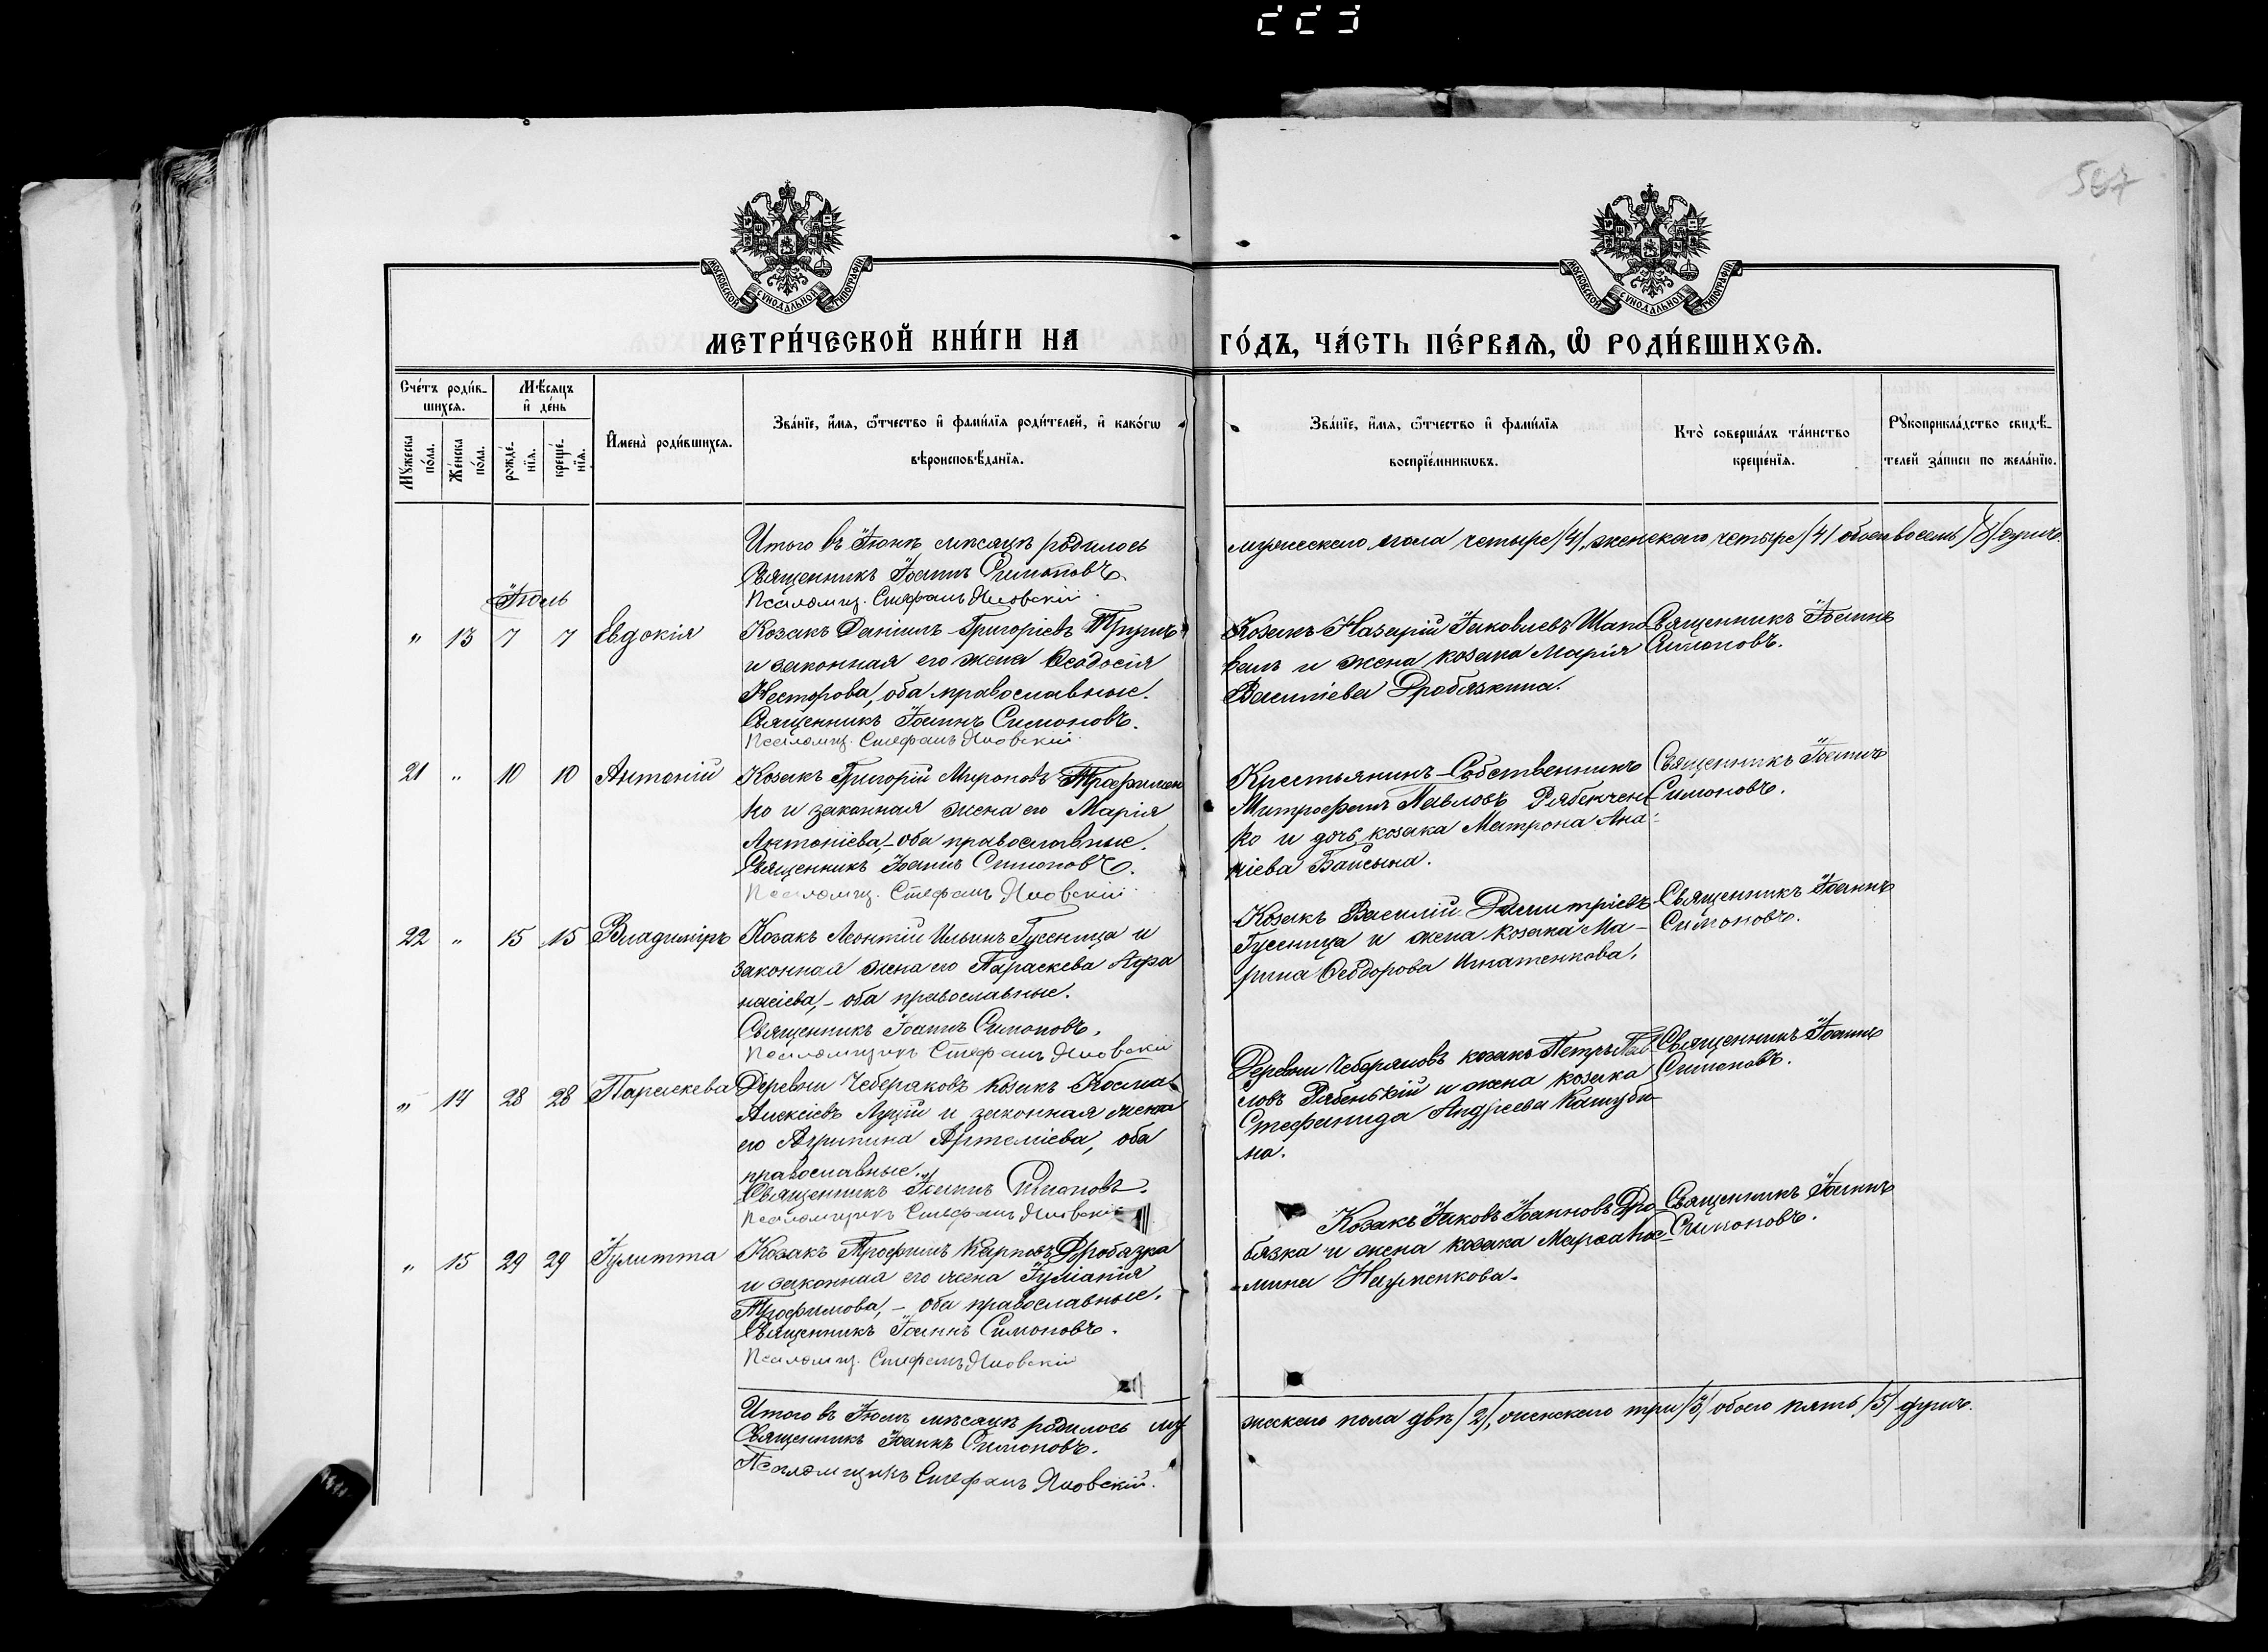 567
МОСКОВСКОЙ СѴНОДАЛЬНОЙ ТИПОГРАФІИ
МОСКОВСКОЙ СѴНОДАЛЬНОЙ ТИПОГРАФІИ
МЕТРИ́ЧЕСКОЙ КНИ́ГИ НА ГО́ДЪ, ЧА́СТЬ ПЕ́РВАѦ, Ѡ҆ РОДИ́ВШИХСѦ.
Сче́тъ роди́в-
шихсѧ.
Мꙋжеска
по́ла.
Же́нска
по́ла.
Мѣ́сѧцъ
и҆ де́нь
рожде́-
нїѧ.
креще́-
нїѧ.
И҆мена̀ роди́вшихсѧ.
Зва́нїе, и҆́мѧ, ѻ҆́тчество и҆ фами́лїѧ роди́телей, и҆ како́гѡ
вѣроисповѣ́данїѧ.
Зва́нїе, и҆́мѧ, ѻ҆́тчество и҆ фами́лїѧ
воспрїе́мникѡвъ.
Кто̀ соверша́лъ та́инство
креще́нїѧ.
Рꙋкоприкла́дство свидѣ́-
телей за́писи по жела́нїю.
Итого въ Іюнѣ мѣсяцѣ родилось мужескаго пола четыре /4/, женскаго четыре /4/ обоего восемь /8/ душъ.
Священникъ Іоаннъ Симоновъ.
Псаломщ. Стефанъ Яновскій.
Іюль
" 13 7 7 Евдокія
Козакъ Даніилъ Григоріевъ
и законная его жена Ѳеодосія
Несторова, оба православные.
Священникъ Іоаннъ Симоновъ.
Псаломщ. Стефанъ Яновскій.
Козакъ Назарій Іаковлевъ Шапо-
валъ и жена козака Марія
Василіева Дробязкина.
Священникъ Іоаннъ
Симоновъ.
21 " 10 10 Антоній
Козакъ Григорій Мироновъ Трофимен
ко и законная жена его Марія
Антоніева, - оба православные.
Священникъ Іоаннъ Симоновъ.
Псаломщ. Стефанъ Яновскій.
Крестьянинъ-Собственникъ
Митрофанъ Павловъ Рябенчен-
ко и дочь козака Матрона Ана-
ніева Байсына.
Священникъ Іоаннъ
Симоновъ.
22 " 15 15 Владиміръ
Козакъ Леонтій Ильинъ Гусеница и
законная жена его Параскева Афа
насіева, - оба православные.
Священникъ Іоаннъ Симоновъ.
Псаломщикъ Стефанъ Яновскій
Козакъ Василій Димитріевъ
Гусеница и жена козака Ма-
рина Ѳеодорова Игнатенкова.
Священникъ Іоаннъ
Симоновъ.
" 14 28 28 Параскева
Деревни Чеберяковъ козакъ Косма
Алексіевъ Луцій и законная жена
его Агрипина Артеміева, оба
православные.
Священникъ Іоаннъ Симоновъ.
Псаломщикъ Стефанъ Яновскій
Деревни Чеберяковъ козакъ Петръ Пав-
ловъ Рябенькій и жена козака
Стефанида Андреева Кашуби-
на.
Священникъ Іоаннъ
Симоновъ.
" 15 29 29 Іулитта
Козакъ Трофимъ Карповъ Дробязка
и законная его жена Іуліанія
Трофимова, - оба православные.
Священникъ Іоаннъ Симоновъ.
Псаломщ. Стефанъ Яновскій
Козакъ Іаковъ Іоанновъ Дро-
бязка и жена козака Марѳа Кос-
мина Науменкова.
Священникъ Іоаннъ
Симоновъ.
Итого въ Іюлѣ мѣсяцѣ родилось мужескаго пола двѣ /2/, женскаго три /3/, обоего пять /5/ душъ.
Священникъ Іоаннъ Симоновъ.
Псаломщикъ Стефанъ Яновскій.